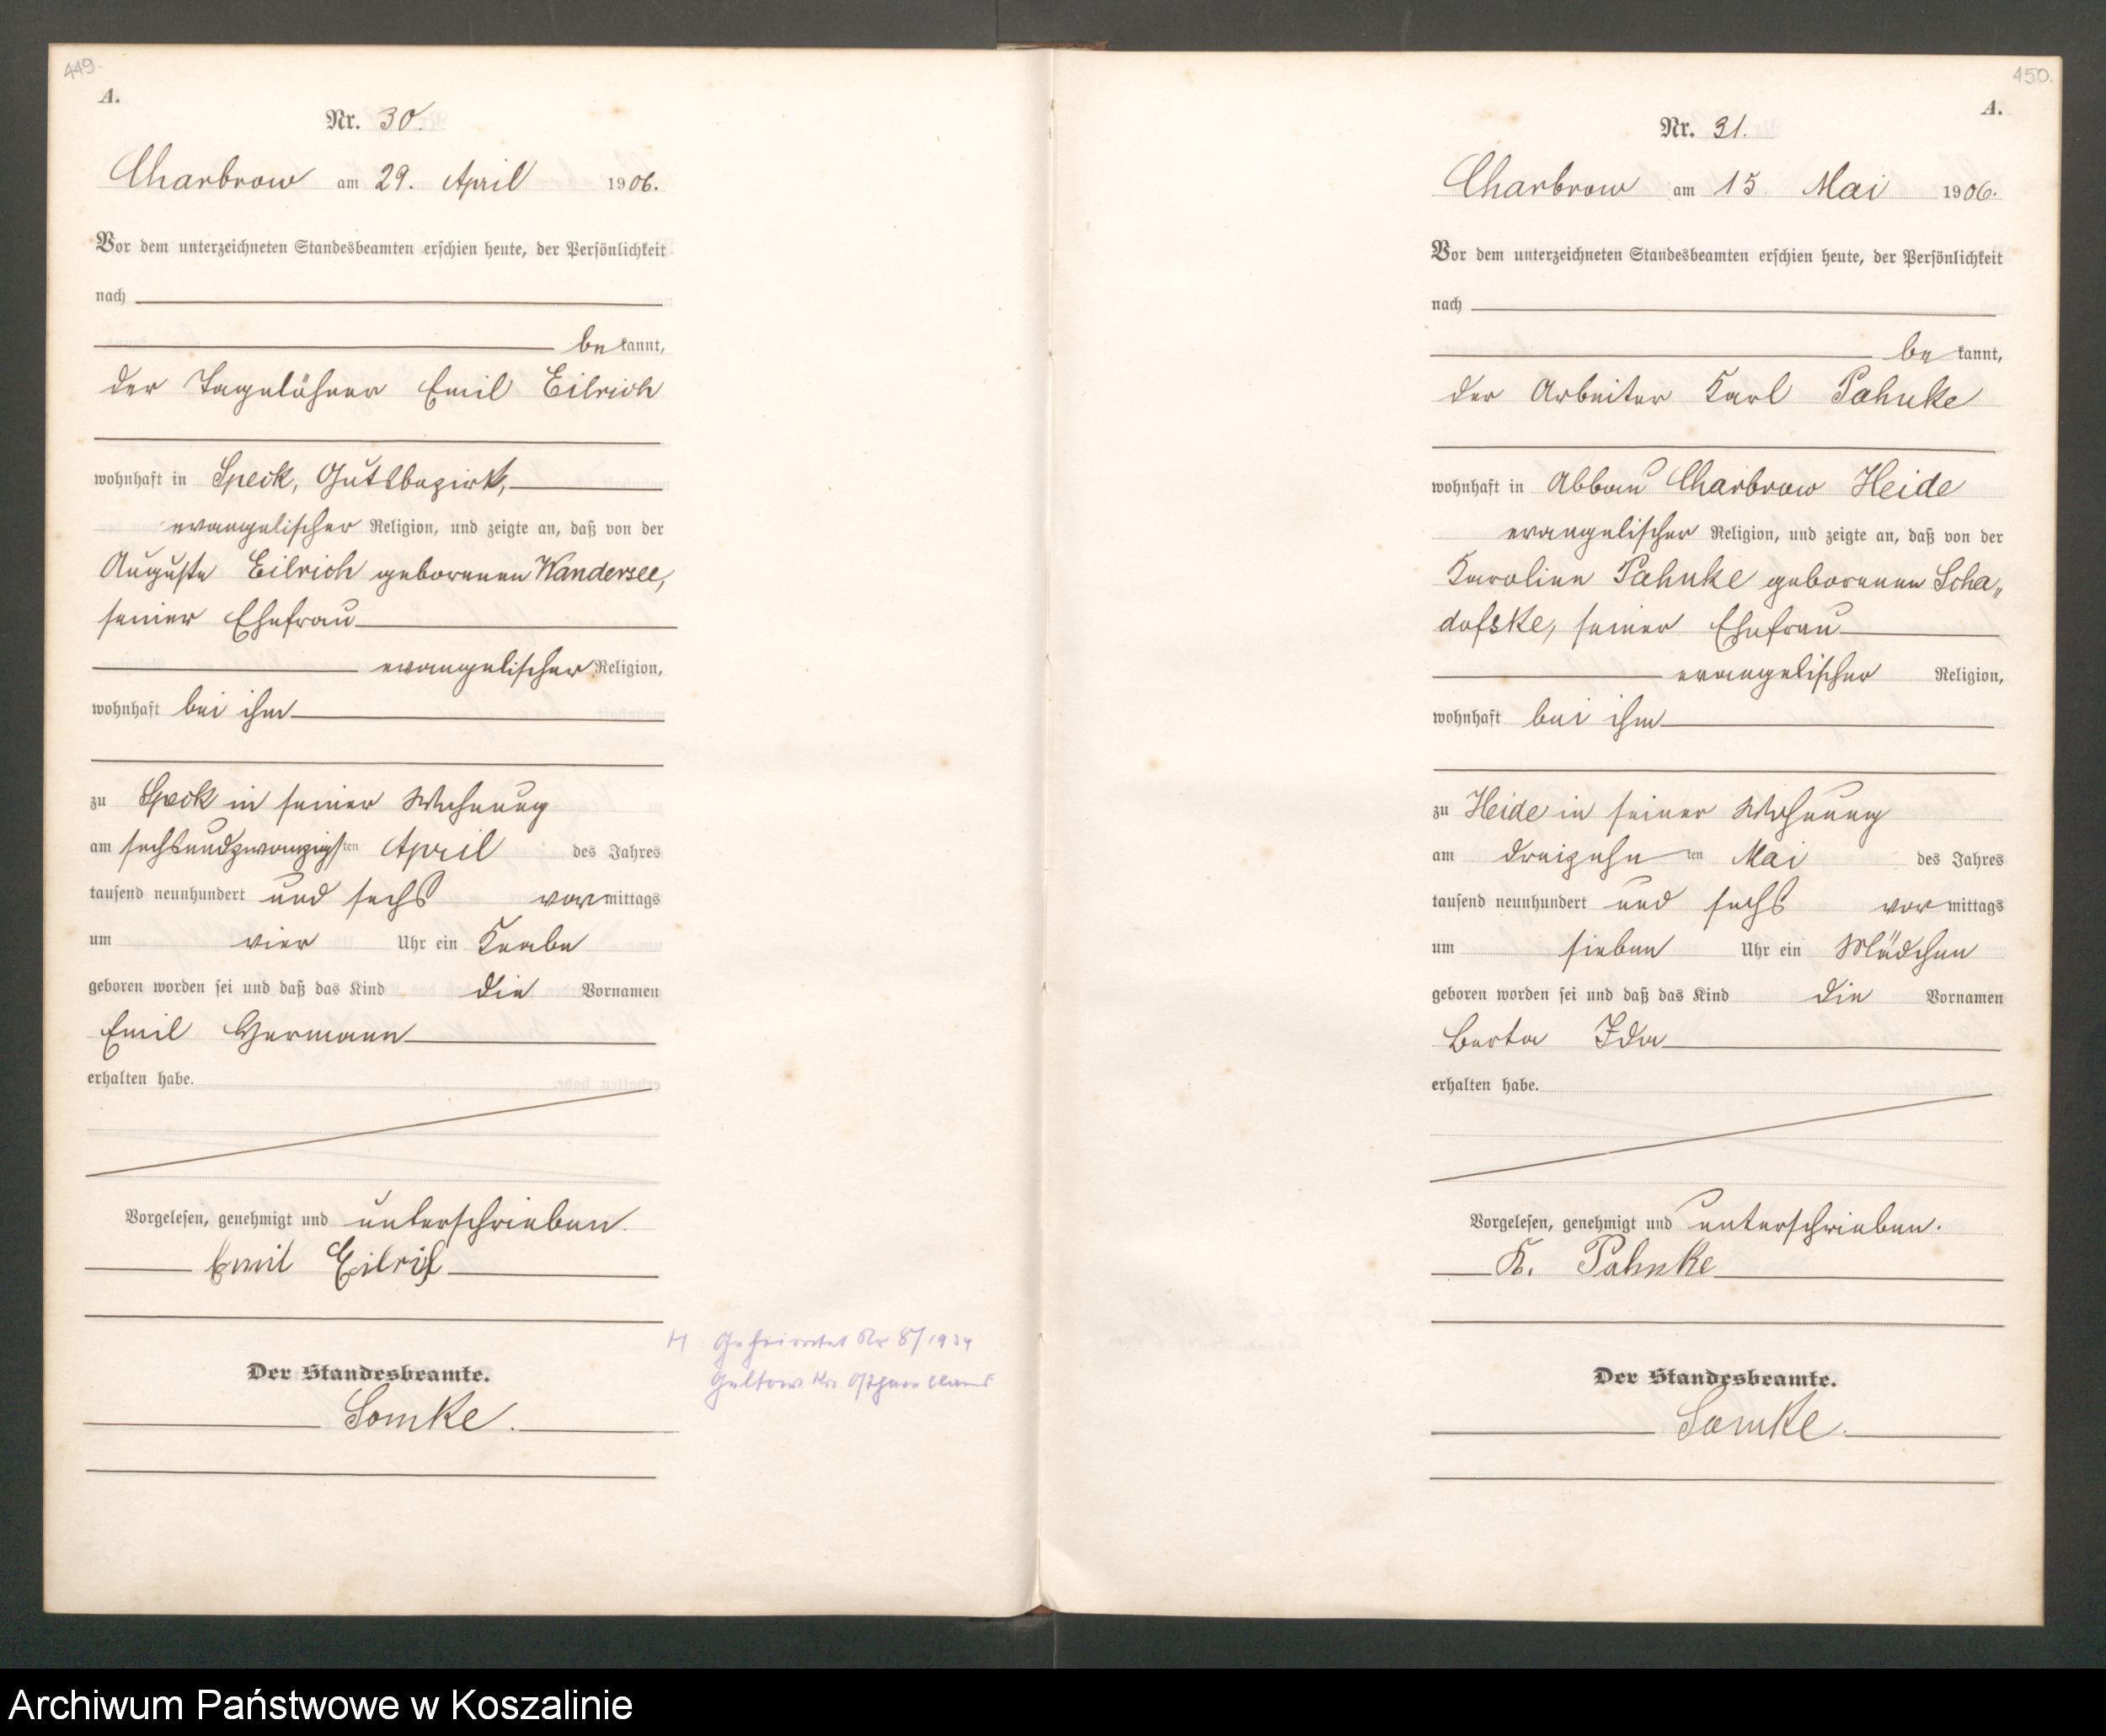 449.
A.
Nr. 30.
Charbrow am 29. April 1906.
Vor dem unterzeichneten Standesbeamten erschien heute, der Persönlichkeit
nach
be kannt,
der Tagelöhner Emil Eilrich
wohnhaft in Speck, Gutsbezirk,
evangelischer Religion, und zeigte an, daß von der
Auguste Eilrich geborenen Wandersee,
seiner Ehefrau
evangelischer Religion,
wohnhaft bei ihm
zu Speck in seiner Wohnung
am sechsundzwanzigsten April des Jahres
tausend neunhundert und sechs vormittags
um vier Uhr ein Knabe
geboren worden sei und daß das Kind die Vornamen
Emil Hermann
erhalten habe.
Vorgelesen, genehmigt und unterschrieben.
Emil Eilrich
Der Standesbeamte.
Somke.
H Geheiratet Nr 8/1934
Geltow Kr. Osthavelland
450.
A.
Nr. 31.
Charbrow am 15 Mai 1906.
Vor dem unterzeichneten Standesbeamten erschien heute, der Persönlichkeit
nach
be kannt,
der Arbeiter Karl Pahnke
wohnhaft in Abbau Charbrow Heide
evangelischer Religion, und zeigte an, daß von der
Karoline Pahnke geborenen Scha„
dofske, seiner Ehefrau
evangelischer Religion,
wohnhaft bei ihm
zu Heide in seiner Wohnung
am dreizehn ten Mai des Jahres
tausend neunhundert und sechs vor mittags
um sieben Uhr ein Mädchen
geboren worden sei und daß das Kind die Vornamen
Berta Ida
erhalten habe.
Vorgelesen, genehmigt und unterschrieben.
K. Pahnke
Der Standesbeamte.
Somke.
Archiwum Państwowe w Koszalinie